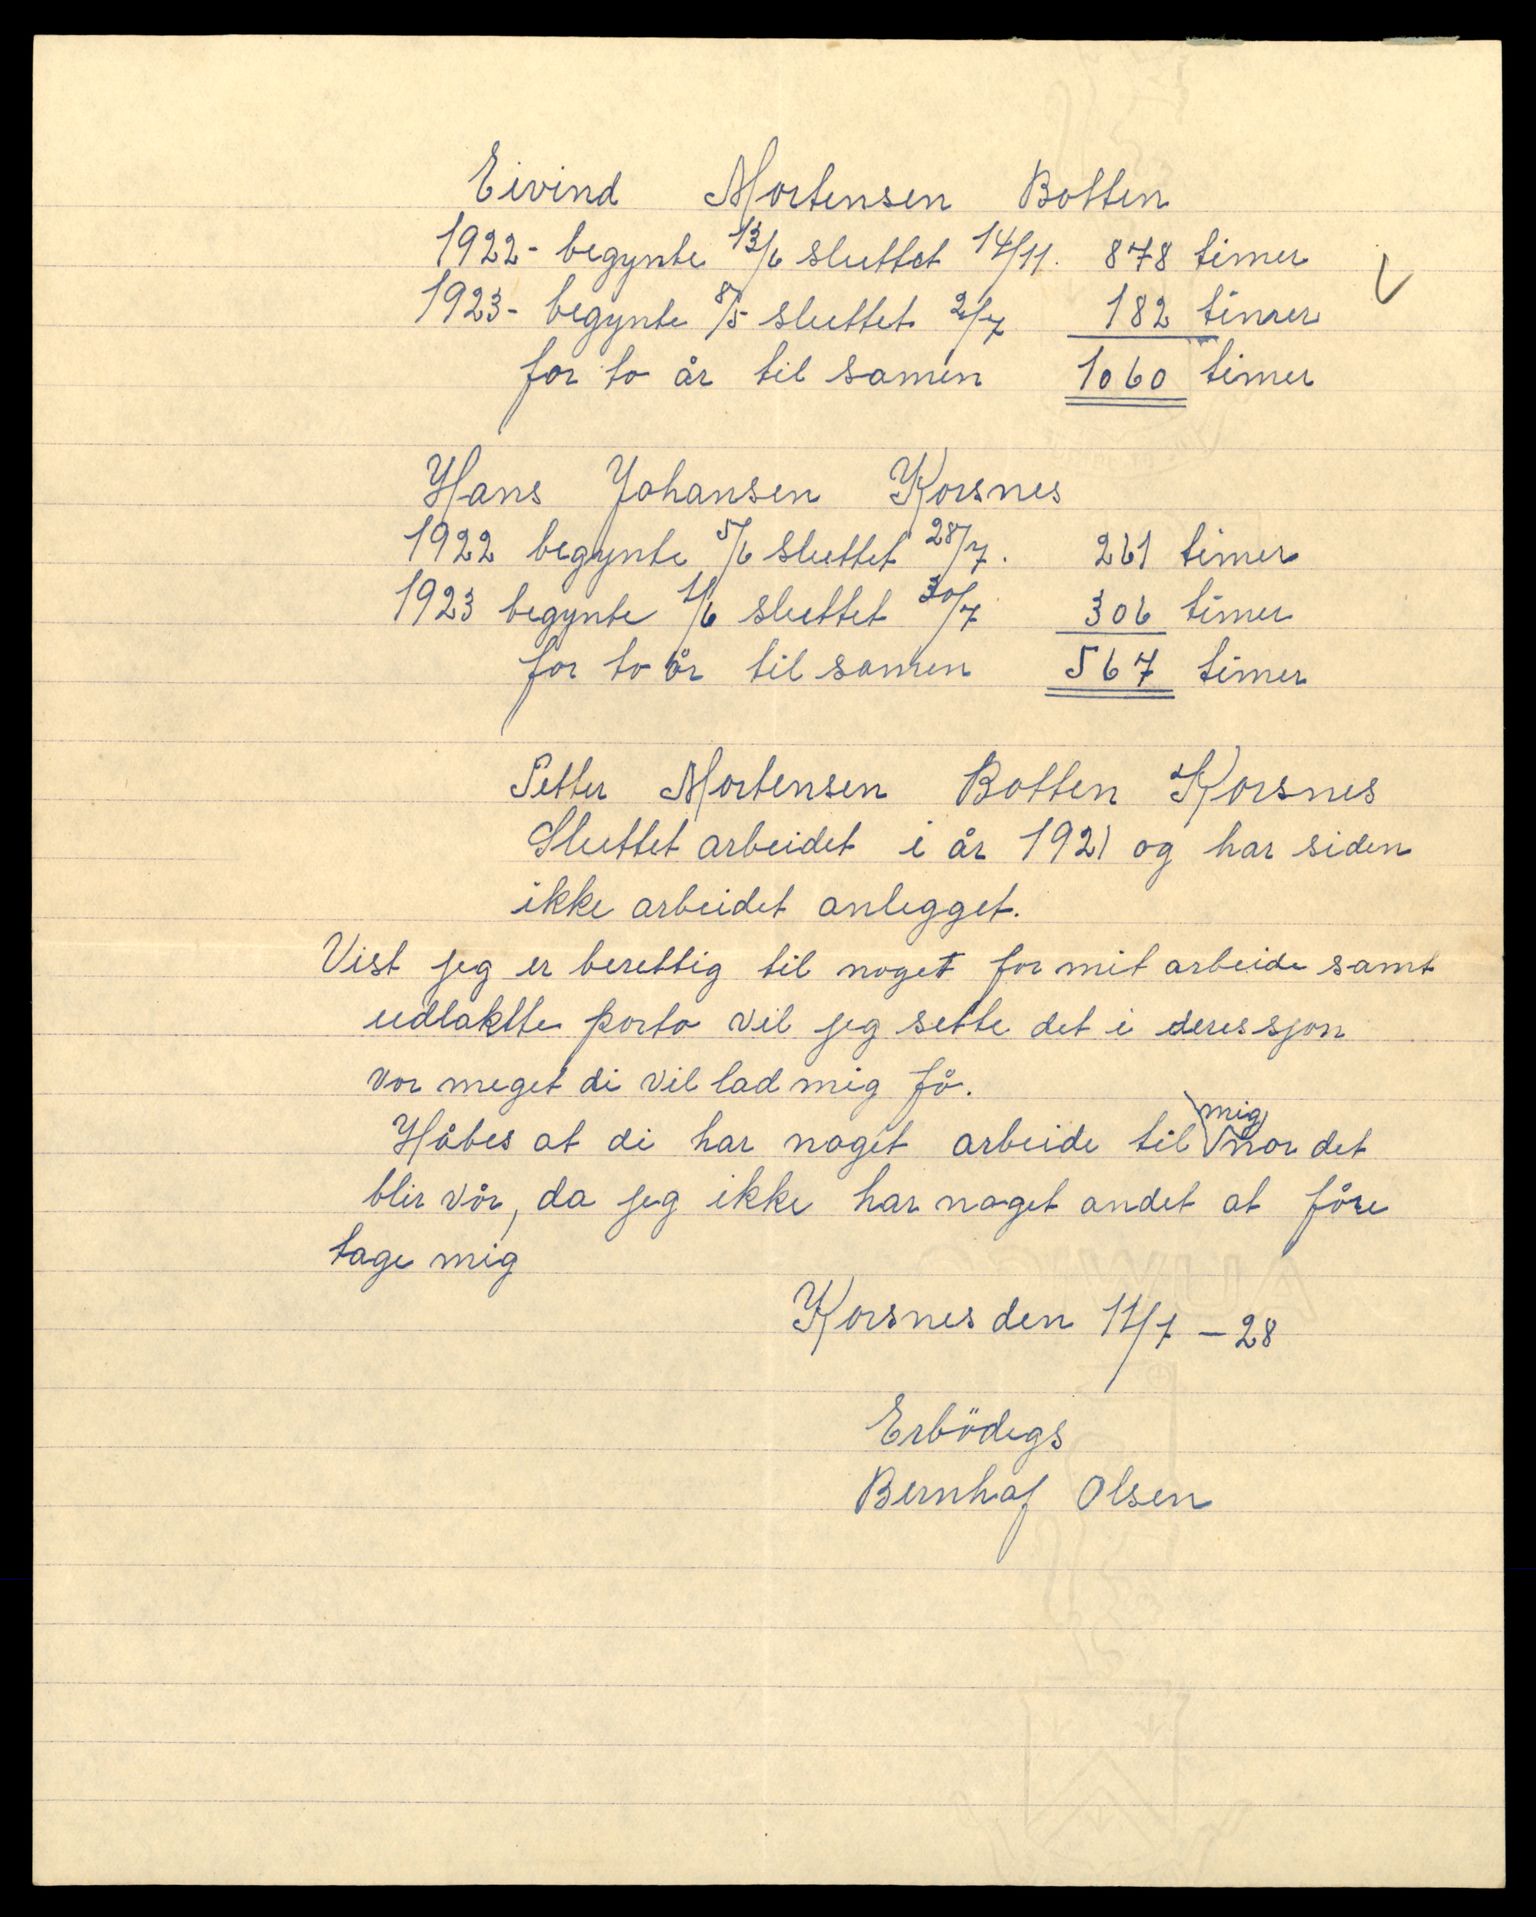 Eivind Mortensen Botten
1922- begynte 13/6 sluttet 14/11. 878 timer
1923- begynte 8/5 sluttet 2/7 182 timer
for to år til samen 1060 timer
Hans Johansen Korsnes
1922 begynte 5/6 sluttet 28/7. 261 timer
1923 begynte 1/6 sluttet 30/7 306 timer
for to år til samen 567 timer
Petter Mortensen Botten Korsnes
Sluttet arbeidet i år 1921 og har siden
ikke arbeidet anlegget.
Vist jeg er berettig til noget for mit arbeide samt
udlaktte porto vil jeg sette det i deres sjøn
vor meget di vil lad mig få.
Håbes at di har noget arbeide til mig nor det
blir vår, da jeg ikke har noget andet at føre
tage mig
Korsnes den 11/1 - 28
Erbödigs
Bernhof Olsen